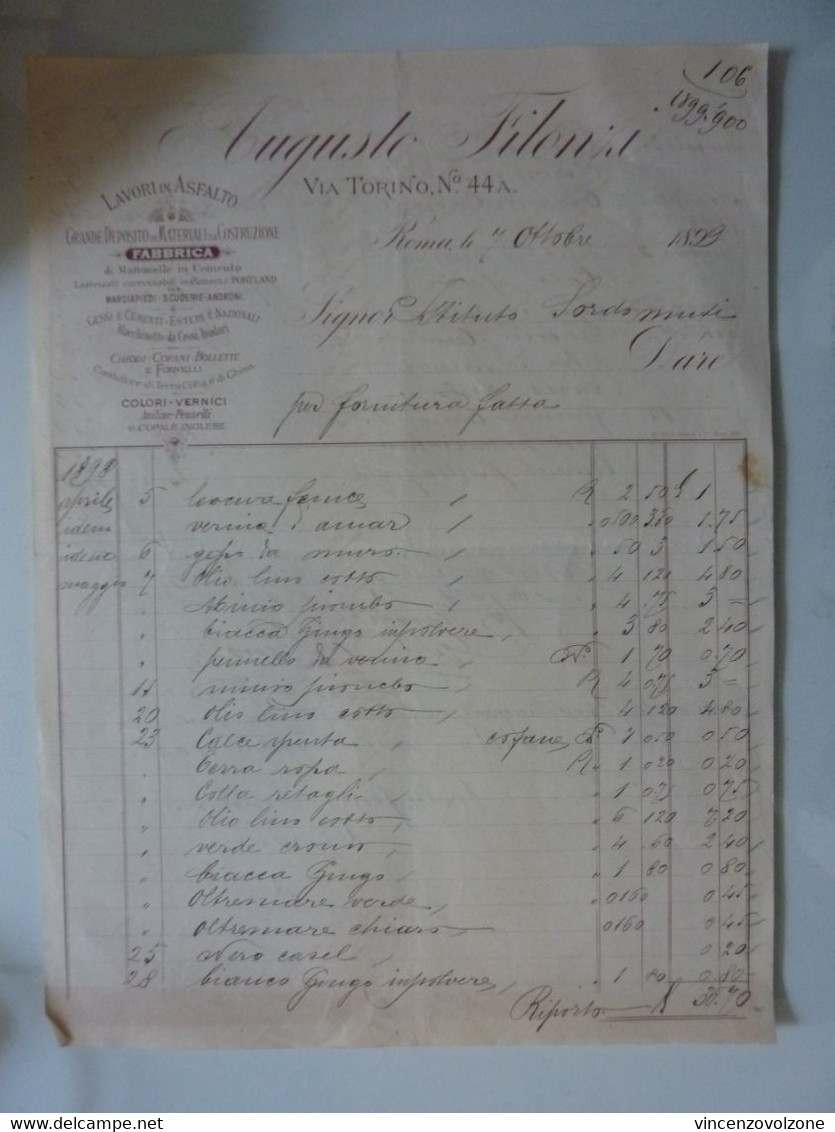 106
1899/900
Augusto Filonzi
VIA TORINO, No. 44 A.
LAVORI IN ASFALTO
GRANDE DEPOSITO DI MATERIALI DA COSTRUZIONE
FABBRICA
di Mattonelle in Cemento
PORTLAND
MARCIAPIEDI - SCUDERIE - ANDRONI
GESSI E CEMENTI - ESTERI E NAZIONALI
CHIODI - COPANI - BOLLETTE
E FORNELLI
Condutture di Terra Cotta e di Ghisa
COLORI - VERNICI
Aniline - Pennelli
e COPALE INGLESE
Roma, le 7 Ottobre 1899
Signor Istituto Sordo muti
Dare
per fornitura fatta
1898
aprile 5 fenice K 2 50 1
idem vernice d'amar 0500 350 1.75
idem 6 gesso da muro 50 3 1 50
maggio 7 Olio lino cotto 4 120 4 80
Minio piombo 4 75 3 =
biacca Zingo in polvere 3 80 2 40
pennello da vernice No. 1 70 0.70
11 minio piombo K 4 075 3 =
20 olio lino cotto 4 120 4.80
23 Calce spenta cofane No. 1 050 0 50
terra rossa K 1 020 0 20
Colla ritagli 1 075 0 75
Olio lino cotto 6 120 7 20
verde cromo 4 60 2 40
biacca Zingo 1 80 0 80
Oltremare verde 0160 0 45
oltremare chiaro 0160 0 45
25 Nero casel 0 20
28 bianco Zingo in polvere 1 80 0.80
Riporto 36.70
delcampe.net
vincenzovolzone